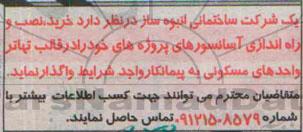 یک شرکت ساختمانی انبوه ساز درنظر دارد خرید،نصب و
راه اندازی آسانسورهای پروژه های خودرادرقالب تهاتر
واحدهای مسکونی به پیمانکارواجد شرایط واگذارنماید.
متقاضیان محترم می توانند جهت کسب اطلاعات بیشتر با
شماره ۸۵۷۹-۰۹۱۲۱۵ تماس حاصل نمایند.